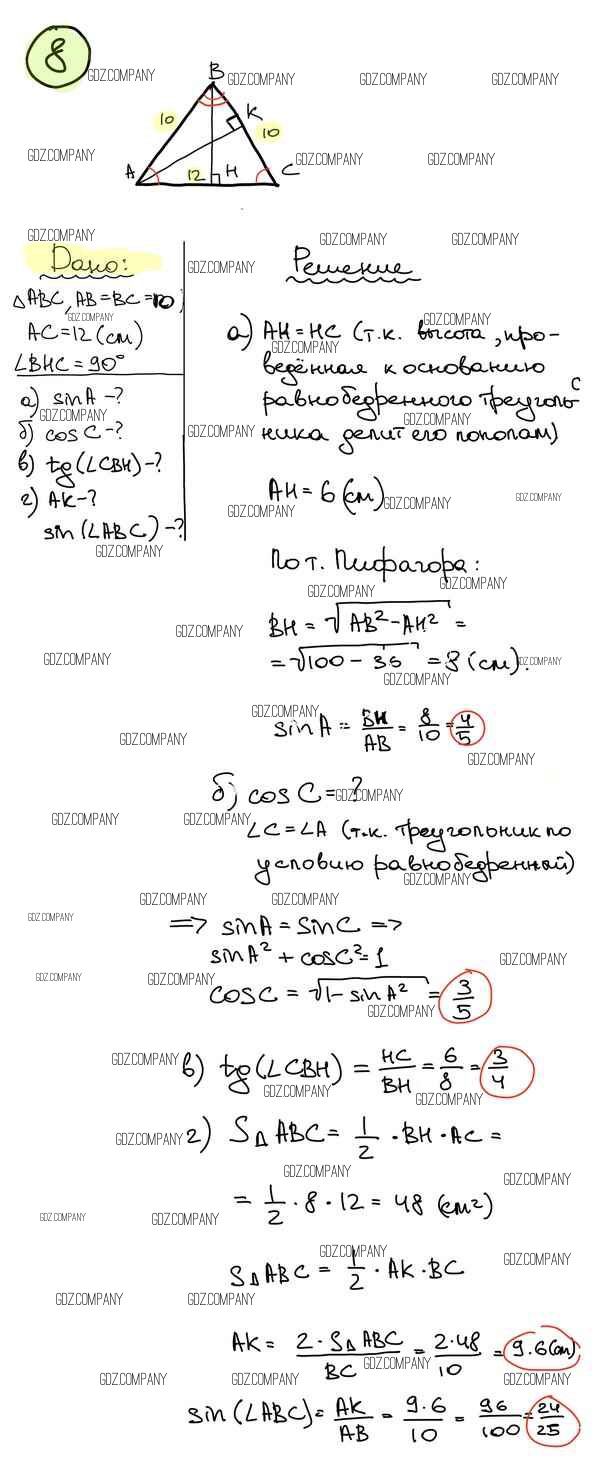 8
B
10
K
10
A
12
H
C
Дано:
△ABC, AB=BC=10,
AC=12(см)
∠BHC=90°
а) sinA-?
б) cosC-?
в) tg(∠CBH)-?
г) AK-?
sin(∠ABC)-?
Решение
а) AH=HC (т.к. высота, про-
ведённая к основанию
равнобедренного треуголь
ника делит его пополам)
AH=6(см)
По т. Пифагора:
BH=√AB²-AH² =
=√100-36 =8(см).
sinA=BH/AB=8/10=4/5
б) cosC=?
∠C=∠A (т.к. треугольник по
условию равнобедренный)
=> sinA=sinC =>
sinA²+cosC²=1
cosC=√1-sinA² =3/5
в) tg(∠CBH)=HC/BH=6/8=3/4
г) S△ABC=1/2·BH·AC=
=1/2·8·12=48(см²)
S△ABC=1/2·AK·BC
AK=2·S△ABC/BC=2·48/10=9.6(см)
sin(∠ABC)=AK/AB=9.6/10=96/100=24/25
GDZ.COMPANY